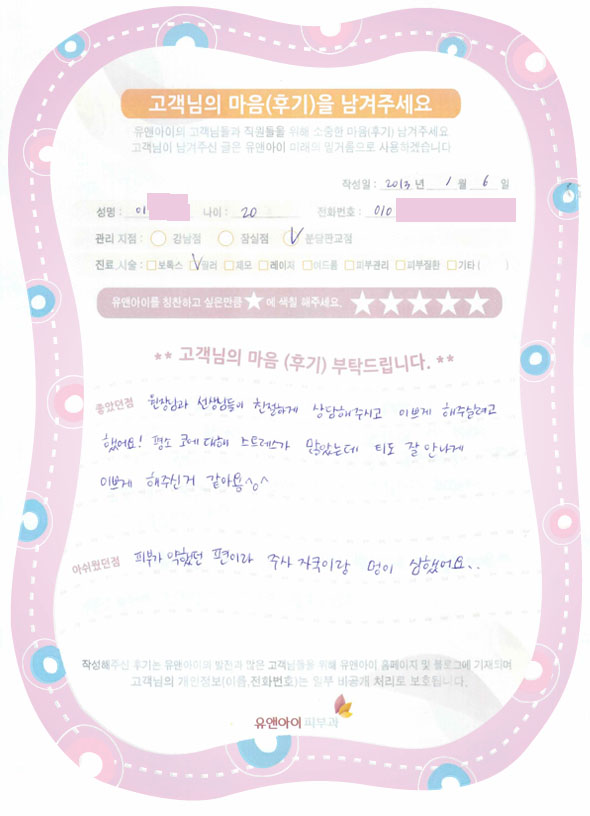 고객님의 마음(후기)을 남겨주세요
유앤아이의 고객님들과 직원들을 위해 소중한 마음(후기) 남겨주세요
고객님이 남겨주신 글은 유앤아이 미래의 밑거름으로 사용하겠습니다
작성일 : 2013 년 1 월 6 일
성명 : 이 나이 : 20 전화번호 : 010
관리 지점 : 강남점 잠실점 분당판교점
진료, 시술 : 보톡스 필러 제모 레이저 여드름 피부관리 피부질환 기타 ( )
유앤아이를 칭찬하고 싶은만큼 ★ 에 색칠 해주세요. ★★★★★
** 고객님의 마음 (후기) 부탁드립니다. **
좋았던점 원장님과 선생님들이 친절하게 상담해주시고 이쁘게 해주실려고
했어요! 평소 코에 대해 스트레스가 많았는데 티도 잘 안나게
이쁘게 해주신거 같아용^o^
아쉬웠던점 피부가 약했던 편이라 주사 자국이랑 멍이 심했어요..
작성해주신 후기는 유앤아이의 발전과 많은 고객님들을 위해 유앤아이 홈페이지 및 블로그에 기재되며
고객님의 개인정보(이름,전화번호)는 일부 비공개 처리로 보호됩니다.
유앤아이피부과